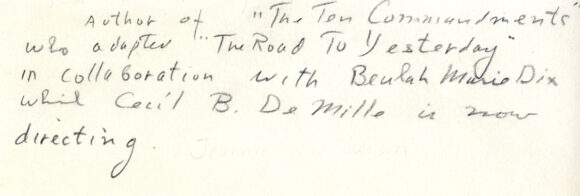 Author of "The Ten Commandments"
who adapted "The Road To Yesterday"
in collaboration with Beulah Marie Dix
which Cecil B. De Mille is now
directing.